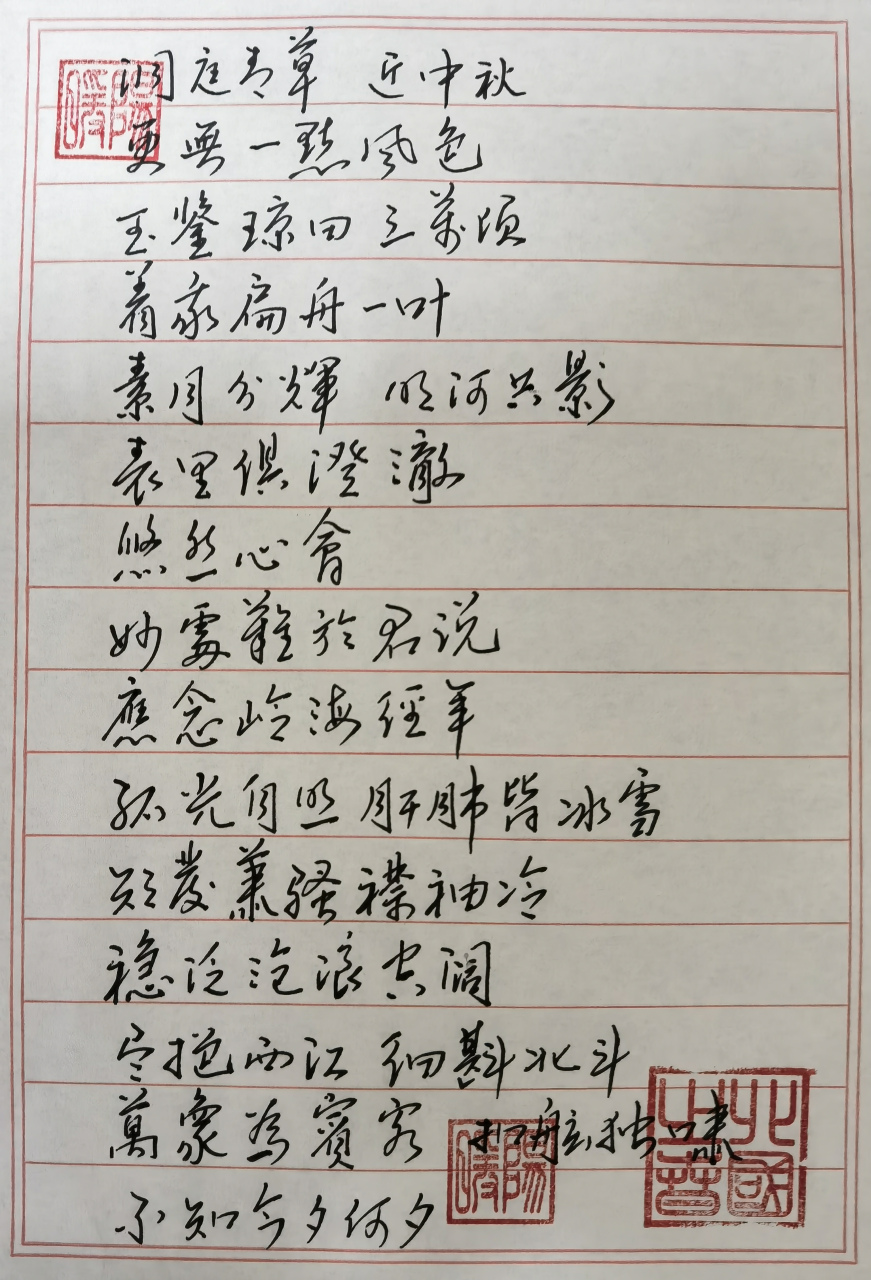 洞庭青草 近中秋
更無一點风色
玉鑒琼田三萬頃
着我扁舟一叶
素月分輝 明河共影
表里俱澄澈
悠然心會
妙處難於君说
應念岭海經年
孤光自照 肝肺皆冰雪
短發萧骚襟袖冷
稳泛沧浪空阔
尽挹西江 细斟北斗
萬象為賓客 扣舷独啸
不知今夕何夕